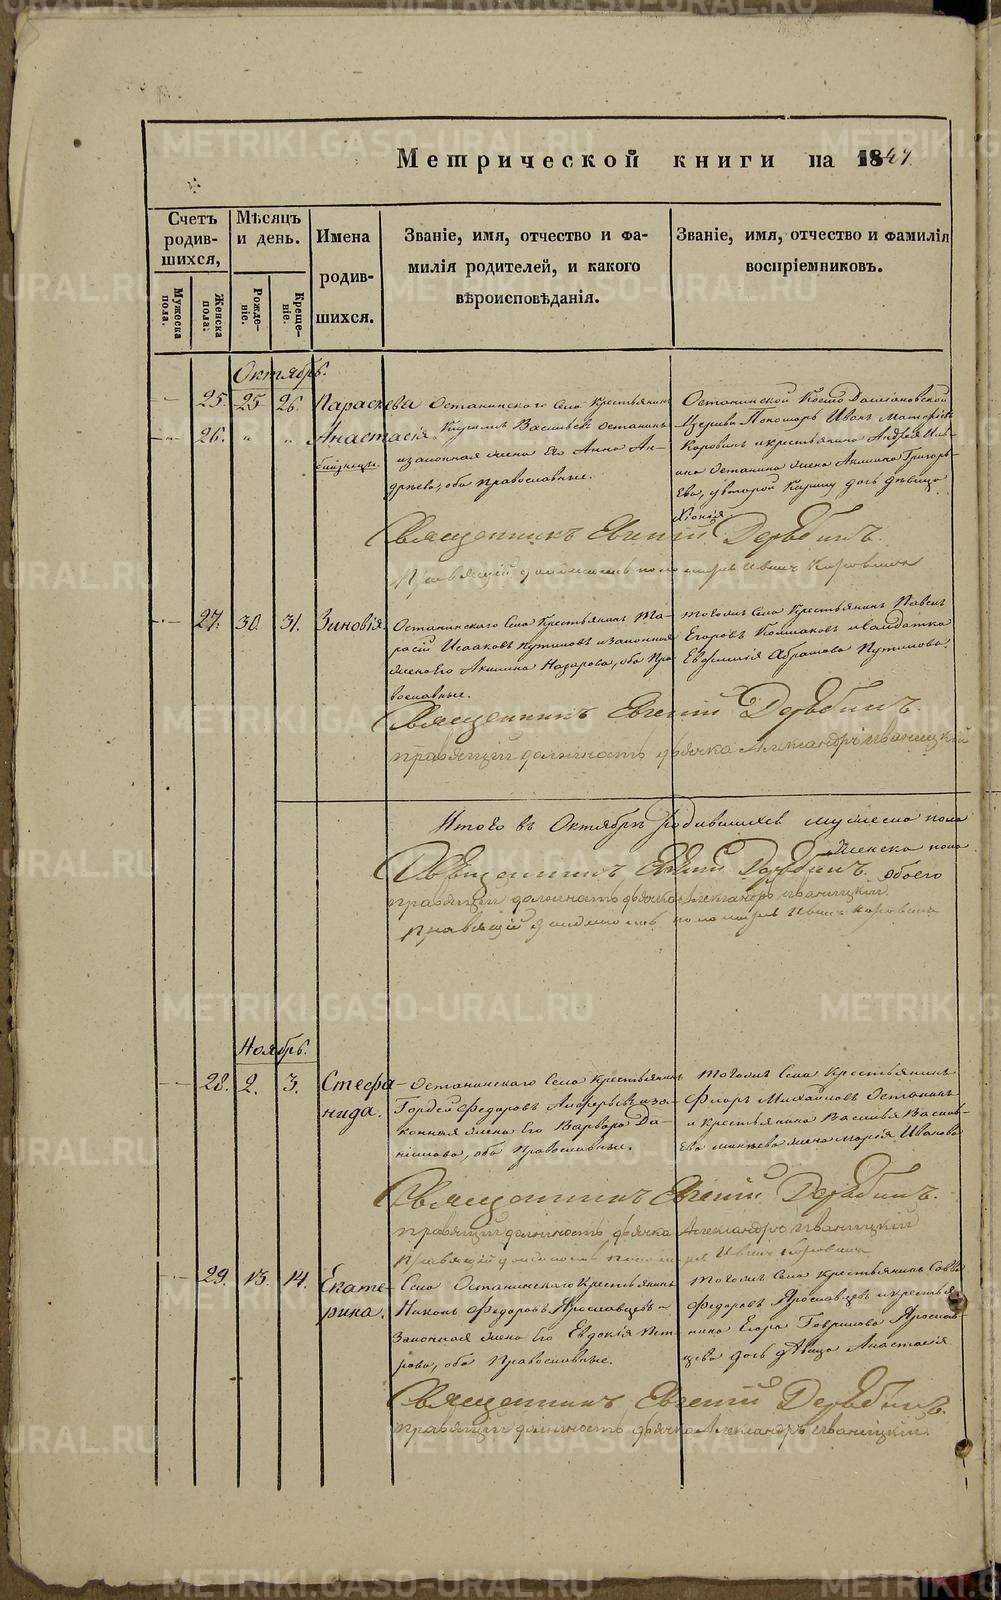 METRIKI.GASO-URAL.RU
Метрической книги на 1847.
Счетъ родив-шихся,
Мужеска пола.
Женска пола.
Мѣсяцъ и день.
Рожде-ніе.
Креще-ніе.
Имена родив-шихся.
Званіе, имя, отчество и фа-
милія родителей, и какого
вѣроисповѣданія.
Званіе, имя, отчество и фамилія
воспріемниковъ.
Октябрь.
25. 25 26. Параскева
26. " " Анастасія
близнецы.
Останинскаго Села Крестьянинъ
Васильевъ Останинъ
и законная жена его Анна Ан-
дрѣева, оба православные.
Останинской Космо Даміановской
Церкви Пономарь Иванъ
Коровинъ и крестьянина Андрея Иль-
ина Останина жена Акилина Григорь-
ева, у второй дочь дѣвица
Хіонія.
Священникъ Евгеній Дерябинъ.
Правящій должность пономаря Иванъ Коровинъ
27. 30. 31. Зиновія.
Останинскаго Села Крестьянинъ Та-
расій Исааковъ Путиловъ и законная
жена Его Акилина Назарова, оба Пра-
вославные.
тогожъ Села Крестьянинъ Павелъ
Егоровъ Колмаковъ и Солдатка
Евфимія Абрамова Путилова.
Священникъ Евгеній Дерябинъ.
правящій должность дьячка Александръ Иваницкій
Итого въ Октябрѣ родившихся мужеска пола
Женска пола
обоего
Священникъ Евгеній Дерябинъ.
правящій должность дьячка Александръ Иваницкій
Правящій должность пономаря Иванъ Коровинъ
Ноябрь.
28. 2. 3. Стефа-
нида.
Останинскаго Села Крестьянинъ
Гордей Федоровъ и за-
конная жена его Варвара Да-
нилова, оба Православные.
тогожъ Села Крестьянинъ
Флоръ Михайловъ Останинъ
и крестьянина Василья Василь-
ева жена Марія Иванова
Священникъ Евгеній Дерябинъ.
правящій должность дьячка Александръ Иваницкій
Правящій должность пономаря Иванъ Коровинъ
29. 13. 14. Екате-
рина.
Села Останинскаго Крестьянинъ
Никонъ Федоровъ Ярославцевъ и
Законная жена Его Евдокія Пет-
рова, оба Православные.
тогожъ Села Крестьянинъ
Федоровъ Ярославцевъ и крестья-
нина Егора Гаврилова Ярослав-
цева дочь дѣвица Анастасія
Священникъ Евгеній Дерябинъ.
правящій должность дьячка Александръ Иваницкій